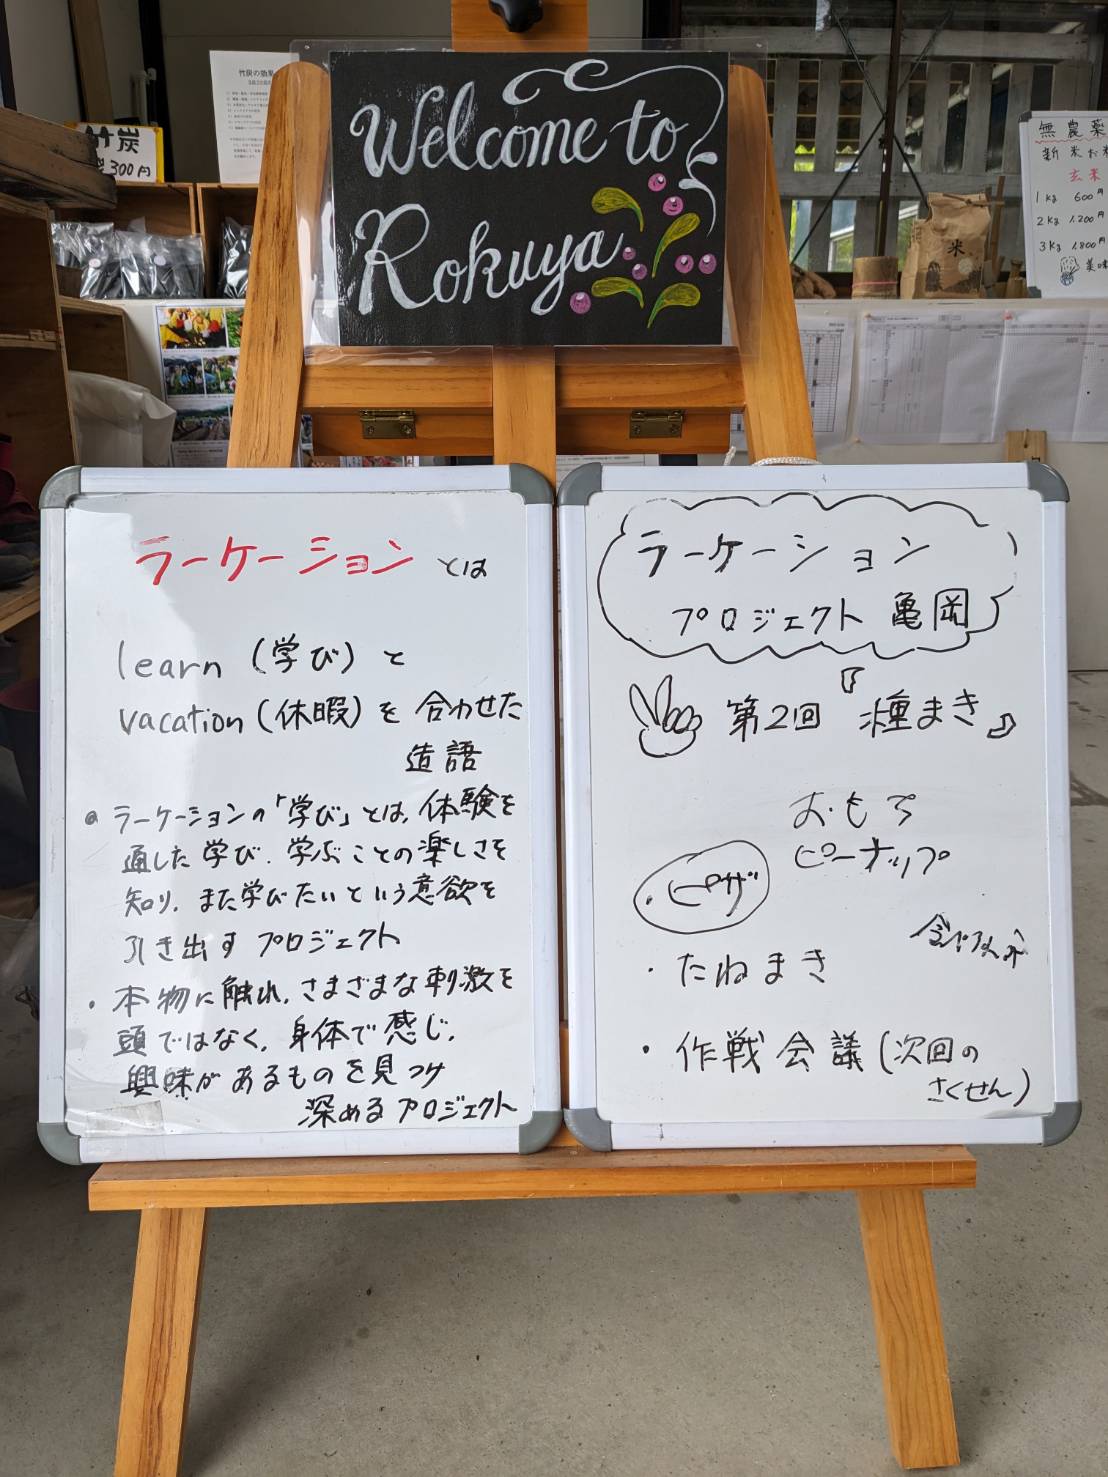 Welcome to
Rokuya
竹炭の効果
竹炭
300円
無農薬
新米
玄米
1kg 600円
2kg 1,200円
3kg 1,800円
美味
米
ラーケーション とは
learn (学び) と
vacation (休暇) を 合わせた
造語
ラーケーションの「学び」とは、体験を
通した学び、学ぶことの楽しさを
知り、また学びたいという意欲を
引き出すプロジェクト
・本物に触れ、さまざまな刺激を
頭ではなく、身体で感じ、
興味があるものを見つけ
深めるプロジェクト
ラーケーション
プロジェクト 亀岡
第2回 『種まき』
おもち
ピーナップ
・ピザ
・たねまき
・作戦会議(次回の
さくせん)